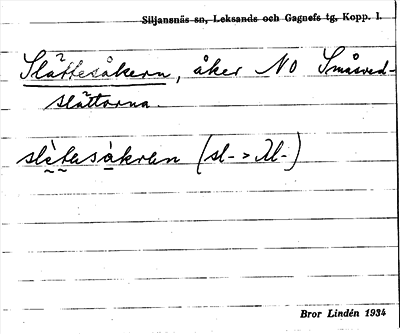 Siljansnäs sn, Leksands och Gagnefs tg, Kopp. l.
Slåttesåkern, åker NO Småsved-
slåttorna.
slḛ̀ta̰sàkrän (sl- > λl-)
Bror Lindén 1934